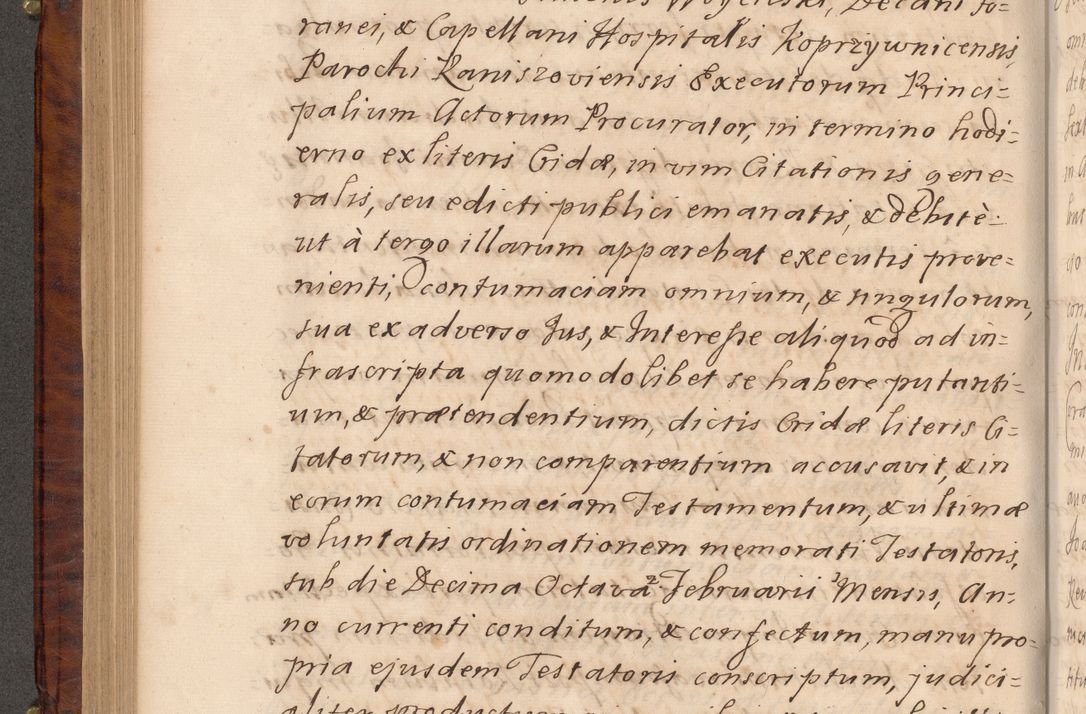 Decani fo=
ranei, & Capellani Hospitalis Koprzywnicensis,
Parochi Raniszoviensis Executorum Princi=
palium Actorum Procurator, in termino hodi=
erno ex literis Cridæ, in vim Citationis gene=
ralis, seu edicti publici emanatis, & debitè
ut à tergo illarum apparebat executis prove=
nienti, contumaciam omnium, & singulorum,
sua ex adverso Jus, & Interesse aliquod ad in=
frascripta quomodolibet se habere putanti=
um, & prætendentium, dictis Cridæ literis Ci=
tatorum, & non comparentium accusavit, & in
eorum contumaciam Testamentum, & ultimæ
voluntatis ordinationem memorati Testatoris,
sub die Decima Octava 2 Februarii 1 Mensis, An=
no currenti conditum, & confectum, manu pro=
pria ejusdem Testatoris conscriptum, judici=
aliter